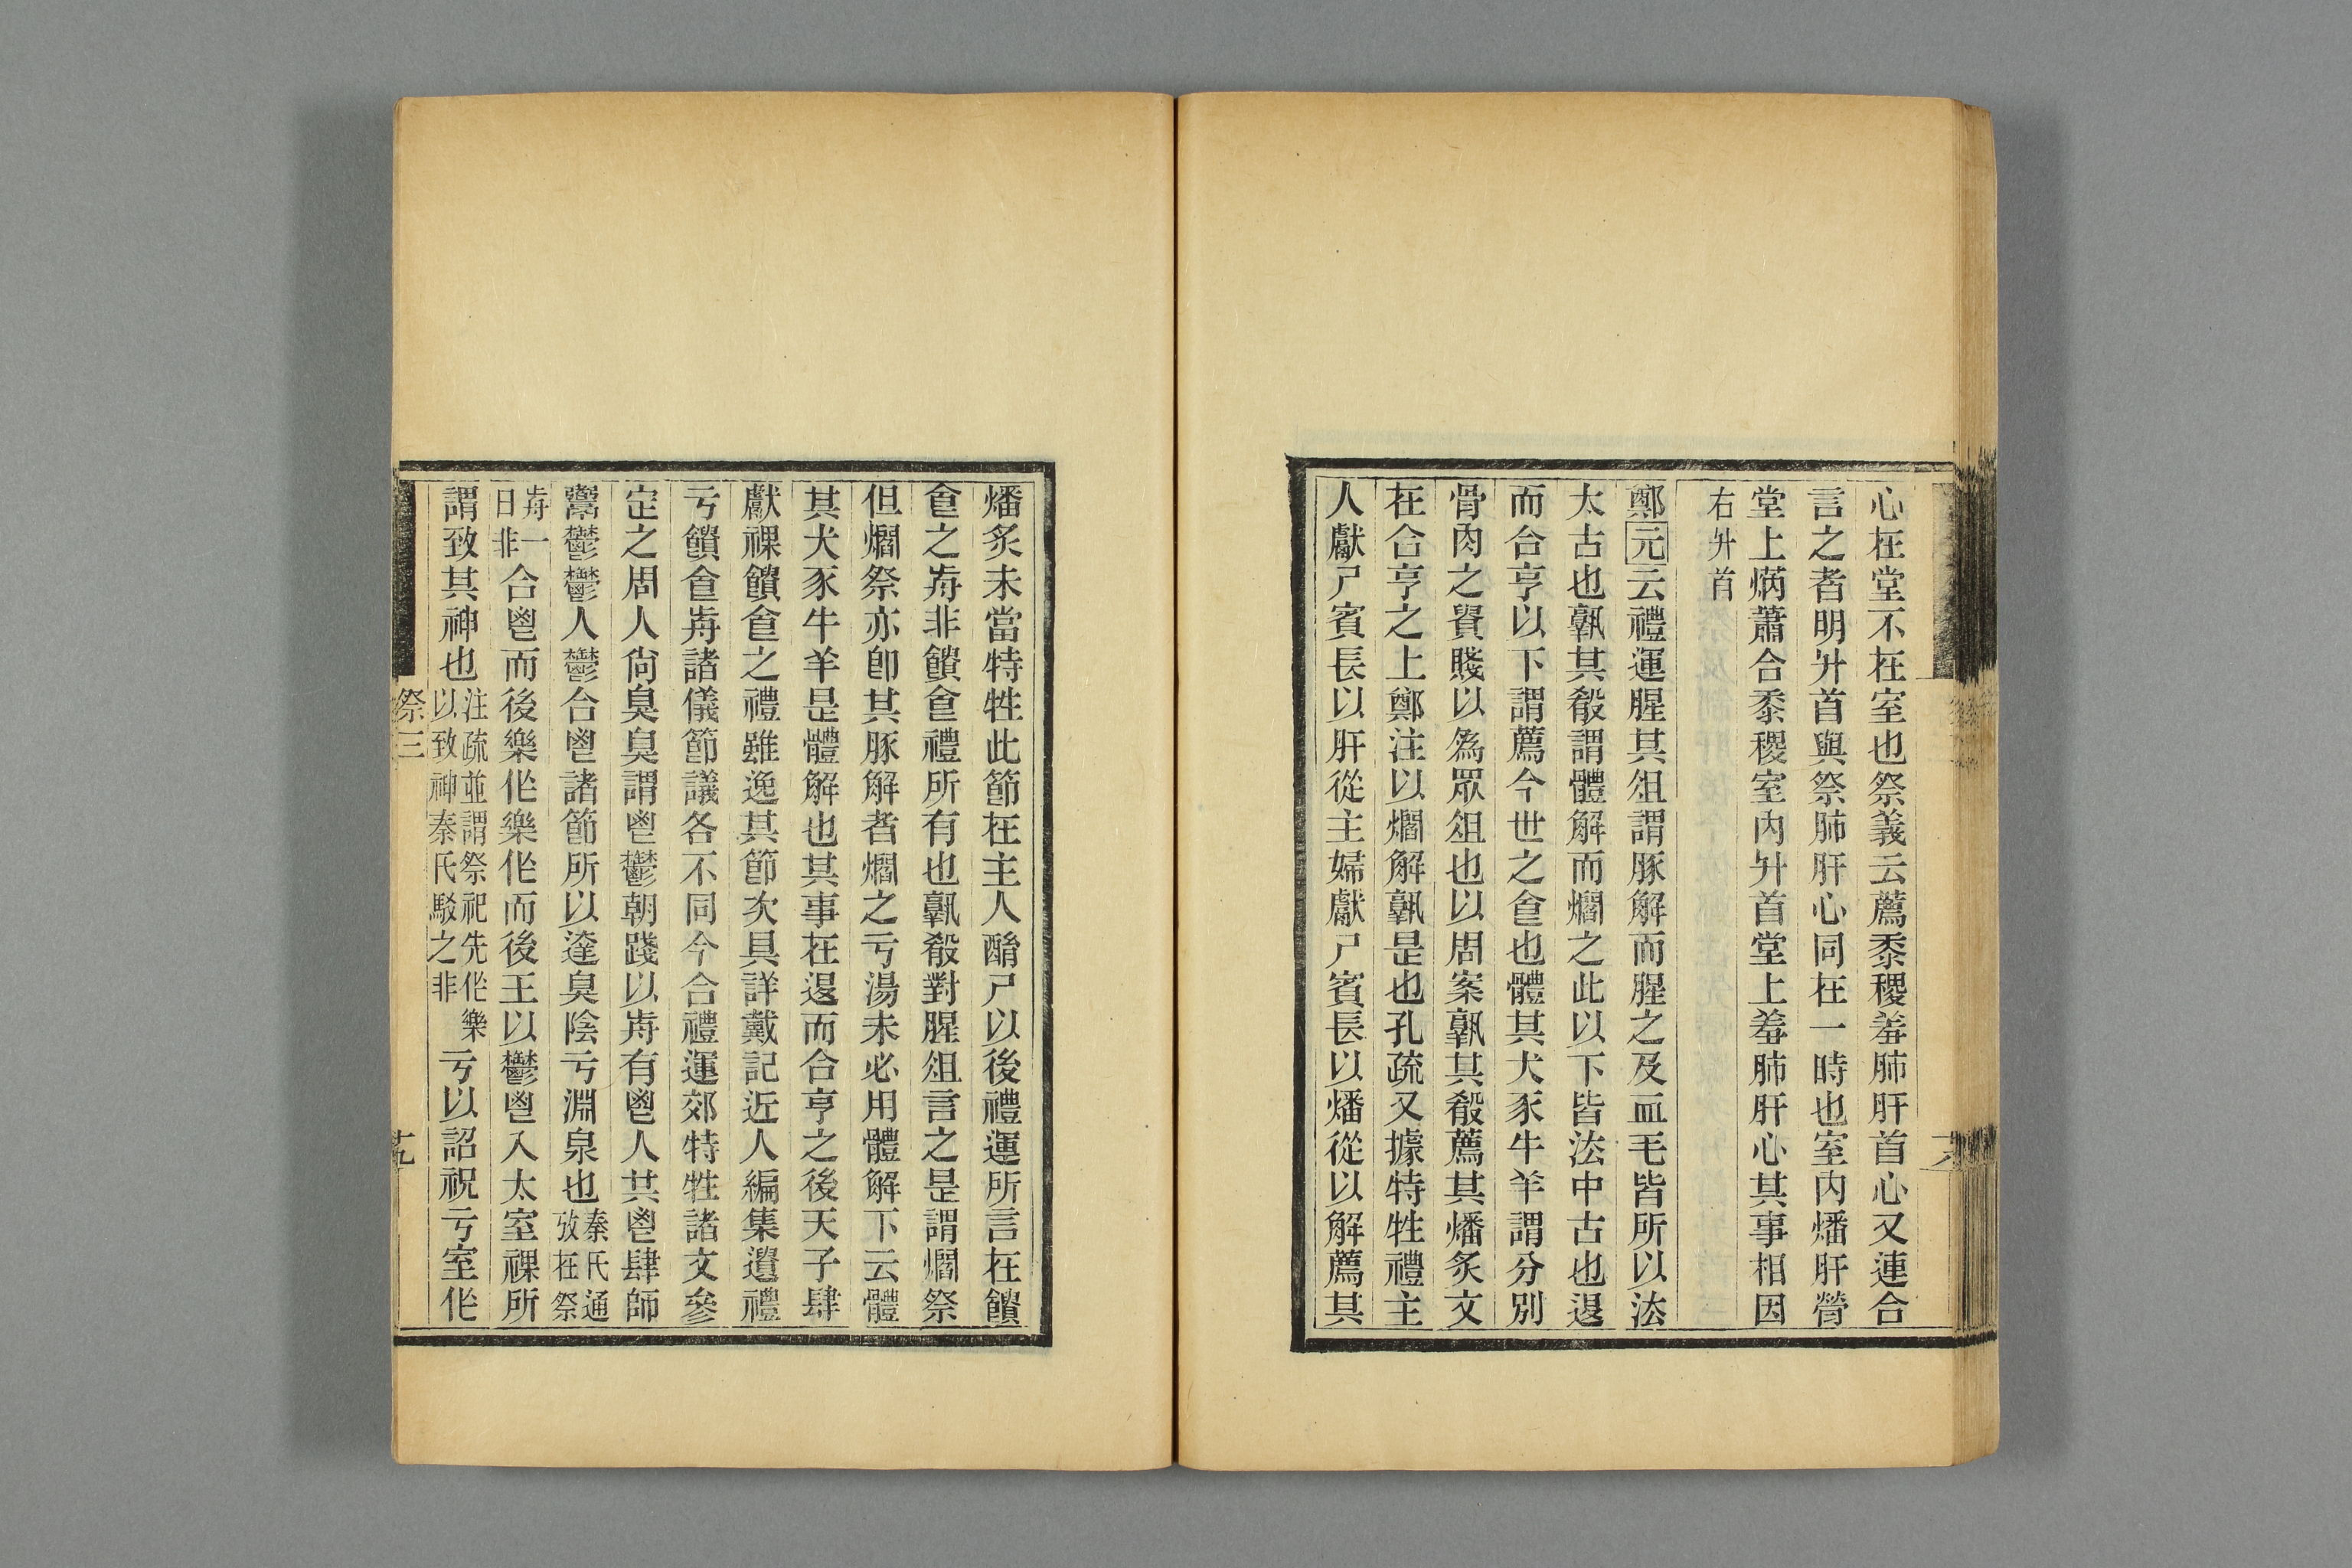 心在堂不在室也祭義云薦黍稷羞肺肝首心又連合
言之者明升首與祭肺肝心同在一時也室内燔肝膋
堂上焫蕭合黍稷室内升首堂上羞肺肝心其事相因
右升首
鄭元云禮運腥其俎謂豚解而腥之及血毛皆所以法
太古也孰其殽謂體解而爓之此以下皆法中古也退
而合亨以下謂薦今世之食也體其犬豕牛羊謂分别
骨肉之貴賤以爲眾俎也以周案孰其殽薦其燔炙文
在合亨之上鄭注以爓解孰是也孔疏又據特牲禮主
人獻尸賓長以肝從主婦獻尸賓長以燔從以解薦其
燔炙未當特牲此節在主人酳尸以後禮運所言在饋
食之歬非饋食禮所有也孰殽對腥俎言之是謂爓祭
但爓祭亦卽其豚解者爓之亏湯未必用體解下云體
其犬豕牛羊是體解也其事在退而合亨之後天子肆
獻祼饋食之禮雖逸其節次具詳戴記近人編集遺禮
亏饋食歬諸儀節議各不同今合禮運郊特牲諸文參
定之周人尚臭臭謂鬯鬱朝踐以歬有鬯人共鬯肆師
鬻鬱鬱人鬱合鬯諸節所以達臭陰亏淵泉也秦氏通
攷在祭
歬一
日非合鬯而後樂作樂作而後王以鬱鬯入太室祼所
謂致其神也注疏並謂祭祀先作樂
以致神秦氏駁之非亏以詔祝亏室作
祭三
十九